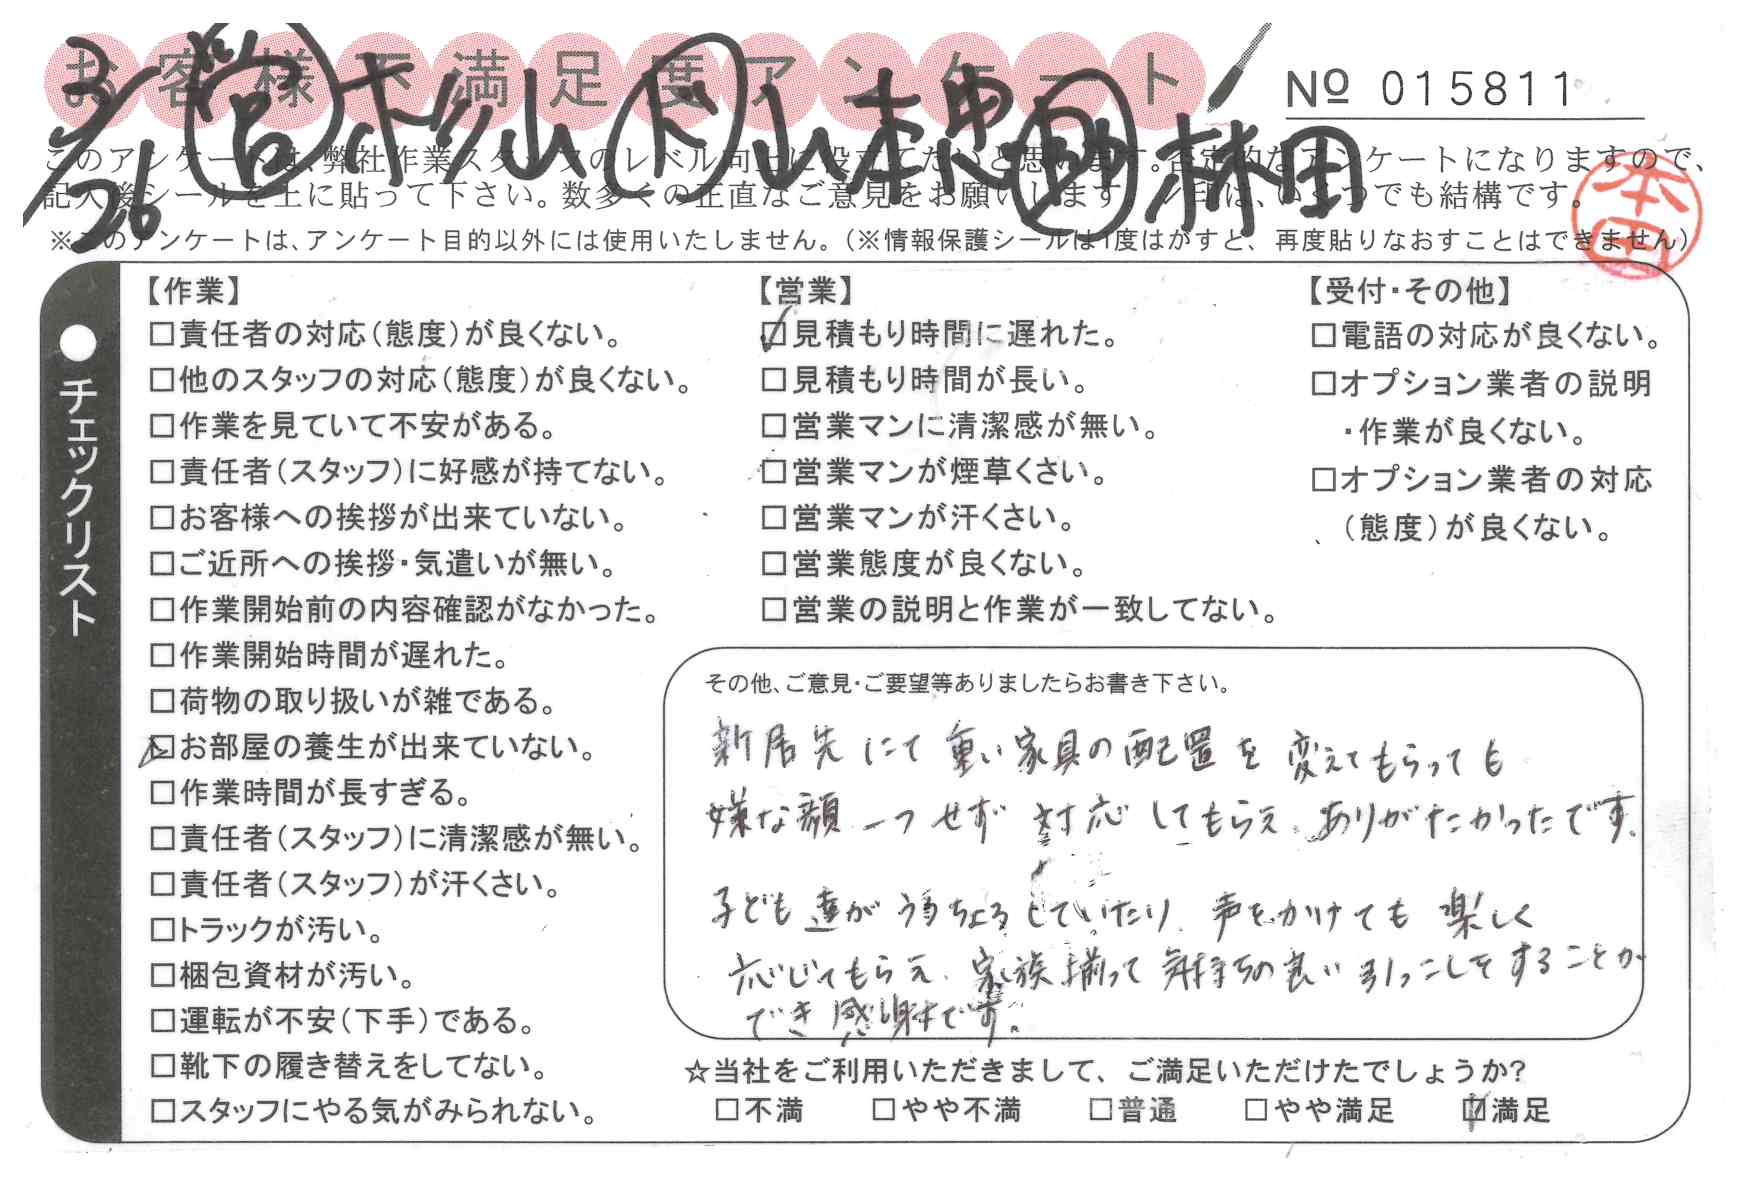 お客様不満足度アンケート
№ 015811
3/26 営 杉山 ト 山本恵 助 林田
このアンケートは、弊社作業スタッフのレベル向上に役立てたいと思います。否定的なアンケートになりますので、
記入後シールを上に貼って下さい。数多くの正直なご意見をお願いします。レ印は、いくつでも結構です。
※このアンケートは、アンケート目的以外には使用いたしません。（※情報保護シールは1度はがすと、再度貼りなおすことはできません）
本田
●チェックリスト
【作業】
□責任者の対応（態度）が良くない。
□他のスタッフの対応（態度）が良くない。
□作業を見ていて不安がある。
□責任者（スタッフ）に好感が持てない。
□お客様への挨拶が出来ていない。
□ご近所への挨拶・気遣いが無い。
□作業開始前の内容確認がなかった。
□作業開始時間が遅れた。
□荷物の取り扱いが雑である。
☑お部屋の養生が出来ていない。
□作業時間が長すぎる。
□責任者（スタッフ）に清潔感が無い。
□責任者（スタッフ）が汗くさい。
□トラックが汚い。
□梱包資材が汚い。
□運転が不安（下手）である。
□靴下の履き替えをしてない。
□スタッフにやる気がみられない。
【営業】
☑見積もり時間に遅れた。
□見積もり時間が長い。
□営業マンに清潔感が無い。
□営業マンが煙草くさい。
□営業マンが汗くさい。
□営業態度が良くない。
□営業の説明と作業が一致してない。
【受付・その他】
□電話の対応が良くない。
□オプション業者の説明
・作業が良くない。
□オプション業者の対応
（態度）が良くない。
その他、ご意見・ご要望等ありましたらお書き下さい。
新居先にて重い家具の配置を変えてもらっても
嫌な顔一つせず対応してもらえ、ありがたかったです。
子ども達がうろちょろしていたり、声をかけても楽しく
応じてもらえ、家族揃って気持ちの良い引っこしをすることが
でき感謝です。
☆当社をご利用いただきまして、ご満足いただけたでしょうか?
□不満 □やや不満 □普通 □やや満足 ☑満足